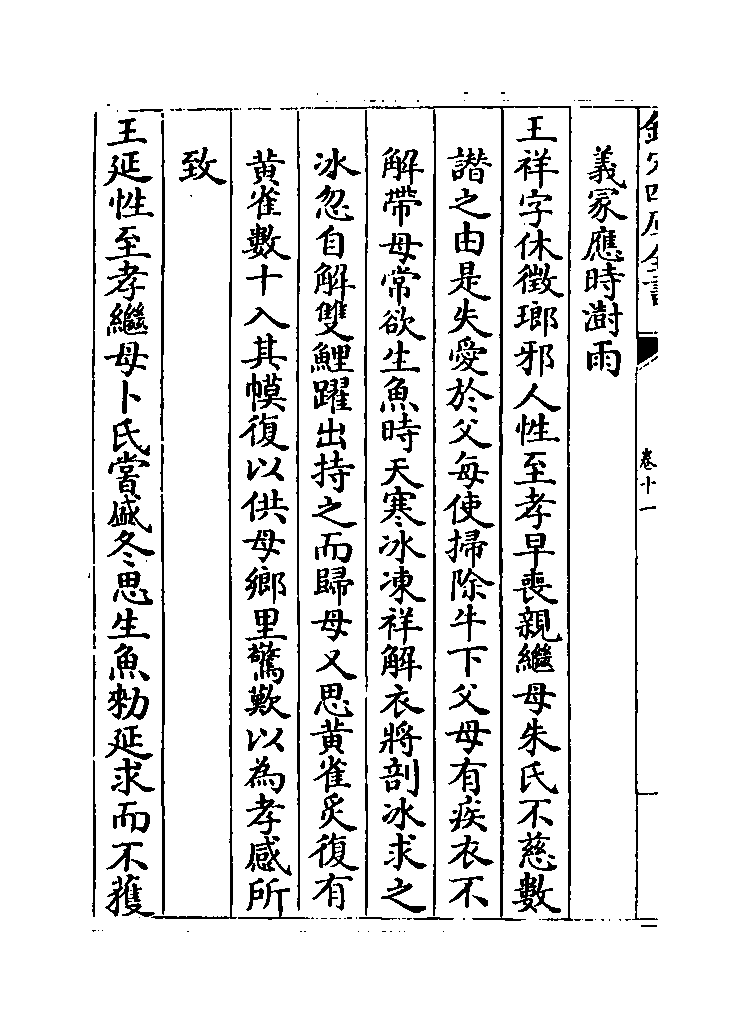 欽定四庫全書
卷十一
義冢應時澍雨
王祥字休徵瑯邪人性至孝早喪親繼母朱氏不慈數
譖之由是失愛於父每使掃除牛下父母有疾衣不
解帶母常欲生魚時天寒冰凍祥解衣將剖冰求之
冰忽自解雙鯉躍出持之而歸母又思黄雀炙復有
黄雀數十入其幙復以供母鄉里驚歎以為孝感所
致
王延性至孝繼母卜氏嘗盛冬思生魚勑延求而不獲